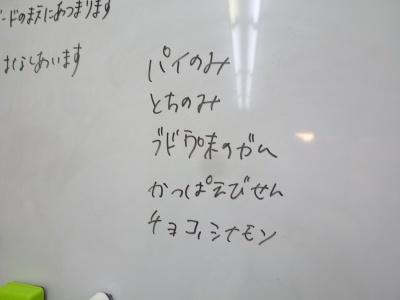 ードのまえにあつまります
はなしあいます
パイのみ
とちのみ
ブドウ味のガム
かっぱえびせん
チョコ,シナモン